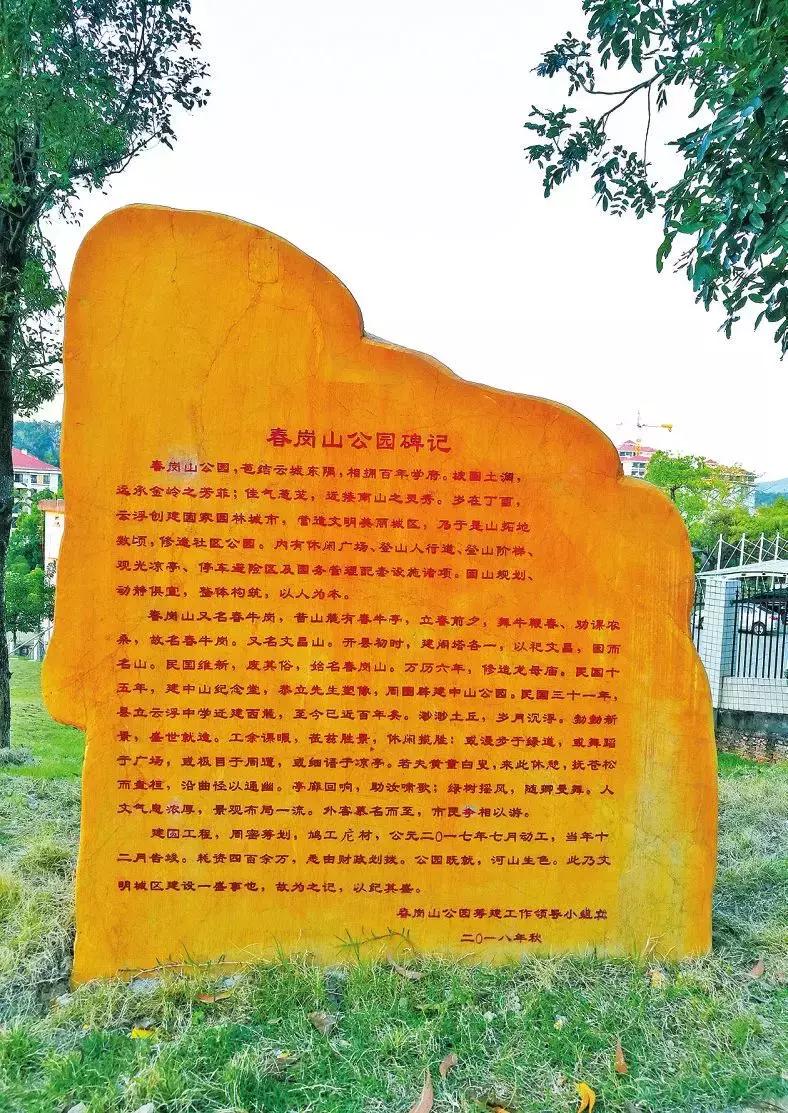 春岗山公园碑记
春岗山公园，苍结云城东隅，相拥百年学府。坡圆土润，
远承金岭之芳菲；佳气葱茏，近接南山之灵秀。岁在丁酉，
云浮创建国家园林城市，营造文明美丽城区，乃于是山拓地
数顷，修造社区公园。内有休闲广场、登山人行道、登山阶梯、
观光凉亭、停车避险区及园务管理配套设施诸项。园山规划、
动静俱宜，整体构筑，以人为本。
春岗山又名春牛岗，昔山麓有春牛亭，立春前夕，舞牛鞭春、劝课农
桑，故名春牛岗。又名文昌山。开县初时，建阁塔各一，以祀文昌，因而
名山。民国维新，废其俗，始名春岗山。万历六年，修造龙母庙。民国十
五年，建中山纪念堂，恭立先生塑像，周围辟建中山公园。民国三十一年，
县立云浮中学迁建西麓，至今已近百年矣。渺渺土丘，岁月沉浮。勃勃新
景，盛世就造。工余课暇，莅兹胜景，休闲揽胜；或漫步于绿道，或舞蹈
于广场，或极目于周道，或细语于凉亭。若夫黄童白叟，来此休憩，抚苍松
而盘桓，沿曲径以通幽。亭廊回响，助汝啸歌；绿树摇风，随卿曼舞。人
文气息浓厚，景观布局一流。外客慕名而至，市民乡相以游。
建园工程，周密筹划，鸠工庀材，公元二〇一七年七月动工，当年十
二月告竣。耗资四百余万，悉由财政划拨。公园既就，河山生色。此乃文
明城区建设一盛事也，故为之记，以纪其盛。
春岗山公园筹建工作领导小组立
二〇一八年秋